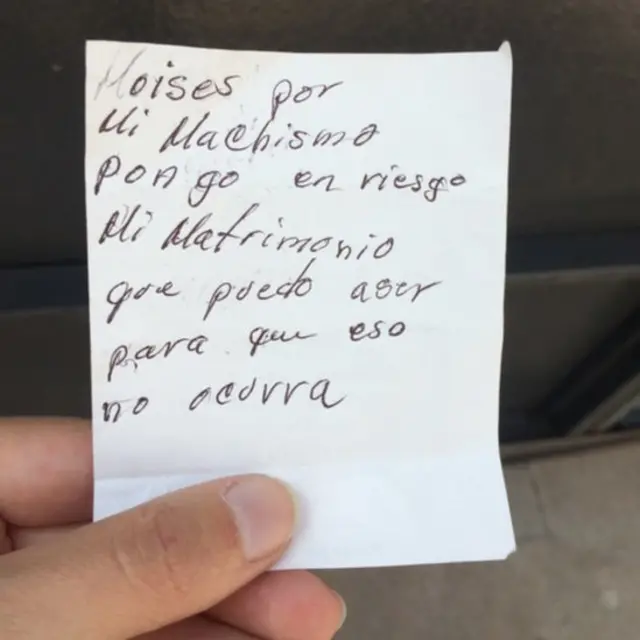 Moises por
Mi Machismo
pongo en riesgo
Mi Matrimonio
que puedo aser
para que eso
no ocurra